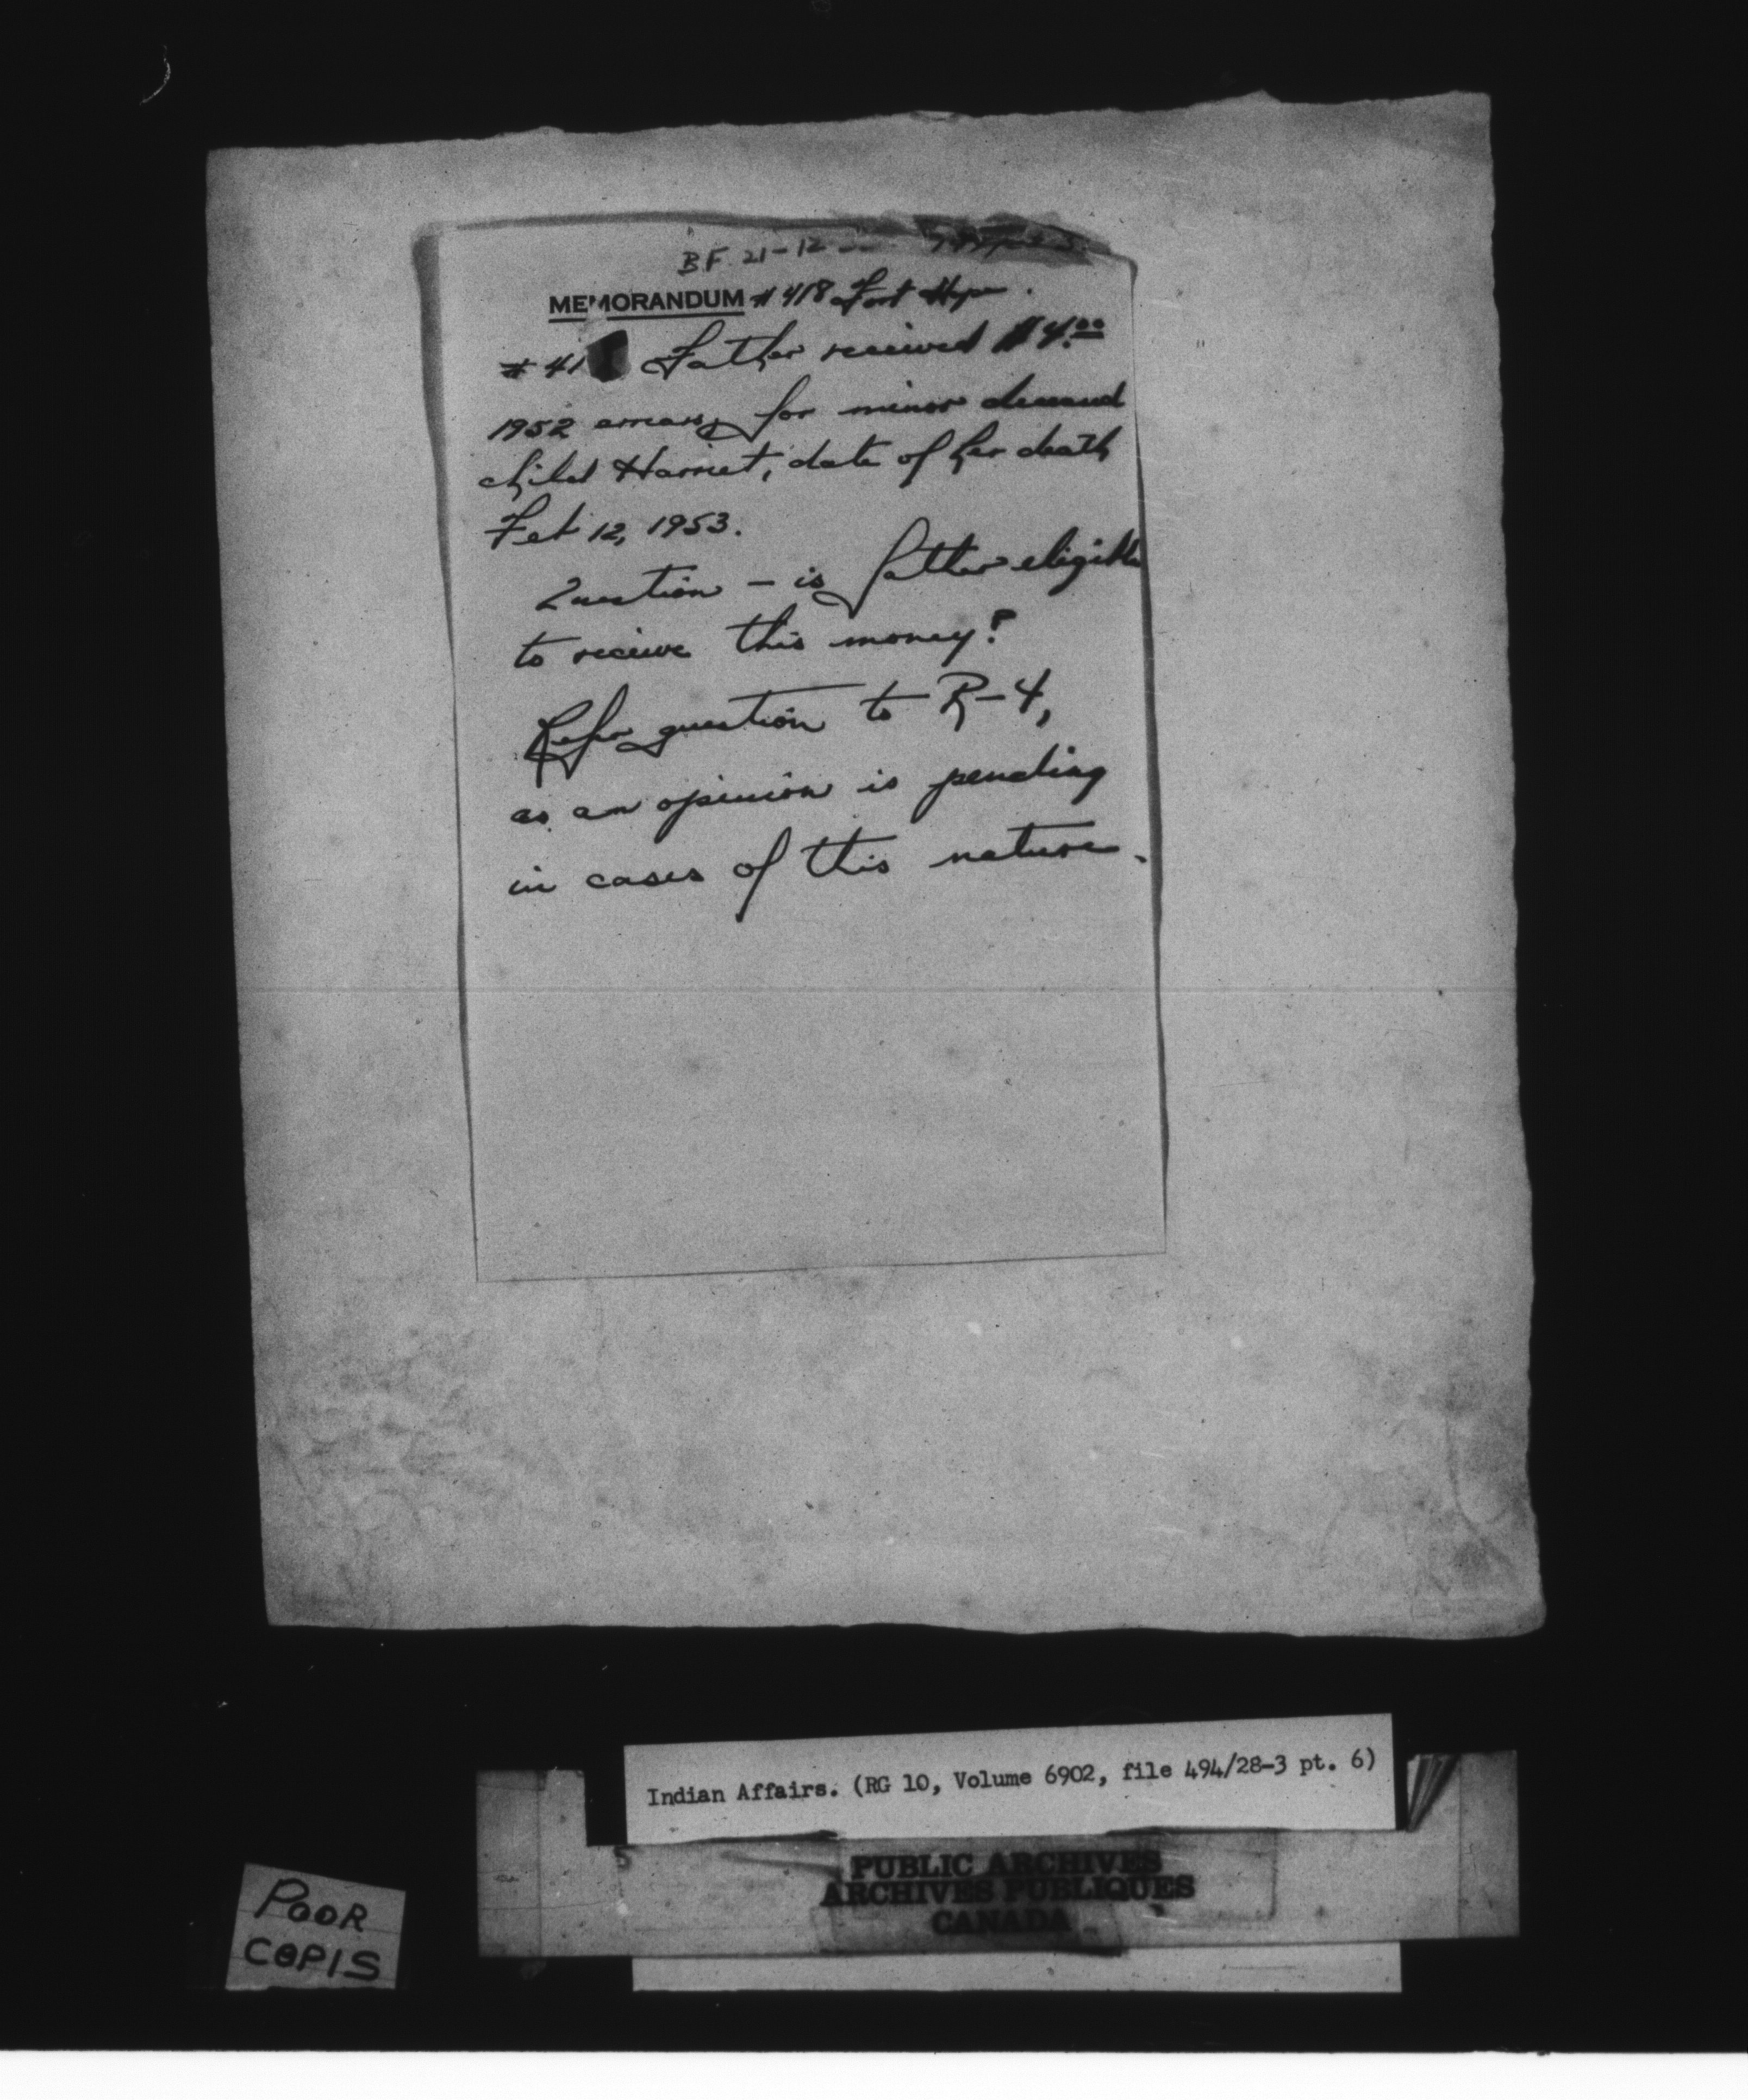 B.F. 21-12
MEMORANDUM # 418 Fort Hope.
# 41 Father received $4.00
1952 arrears, for minor deceased
child Harriet, date of her death
Feb 12, 1953.
Question - is father eligible
to receive this money?
Refer question to R-4,
as an opinion is pending
in cases of this nature.
Indian Affairs. (RG 10, Volume 6902, file 494/28-3 pt. 6)
PUBLIC ARCHIVES
ARCHIVES PUBLIQUES
CANADA
POOR
COPIS